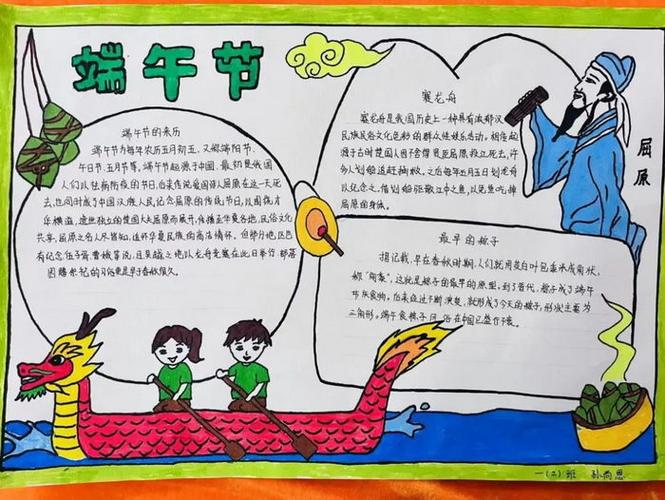 端午节
端午节的来历
端午节为每年农历五月初五、又称端阳节、
午日节、五月节等。端午节起源于中国、最初是我国
人们以祛病防疫的节日,后来传说爱国诗人屈原在这一天死
去,也同时成了中国汉族人民纪念屈原的传统节日。以围绕才
华横溢、遗世独立的楚国大夫屈原而展开,传播至华夏各地,民俗文化
共享,屈原之名人尽皆知,追怀华夏民族的高洁情怀。但部分地区也
有纪念伍子胥曹娥等说,且吴越之地以龙舟竞赛在此日举行部落
图腾祭祀的习俗更是早于春秋很久。
赛龙舟
赛龙舟是我国历史上一种具有浓郁汉
民族民俗文化色彩的群众性娱乐活动。相传起
源于古时楚国人因不舍得贤臣屈原投江死去,许
多人划船追赶拯救。之后每年五月五日划龙舟
以纪念之。借划船驱散江中之鱼,以免鱼吃掉
屈原的身体。
屈原
最早的粽子
据记载,早在春秋时期,人们就用茭白叶包黍米成角状,
称"角黍",这就是粽子的最早的原型。到了晋代,粽子成了端午
节庆食物。后来经过不断演变,就形成了今天的粽子,形状主要为
三角形。端午食粽子风俗在中国已盛行千载。
一(2)班 孙尚恩